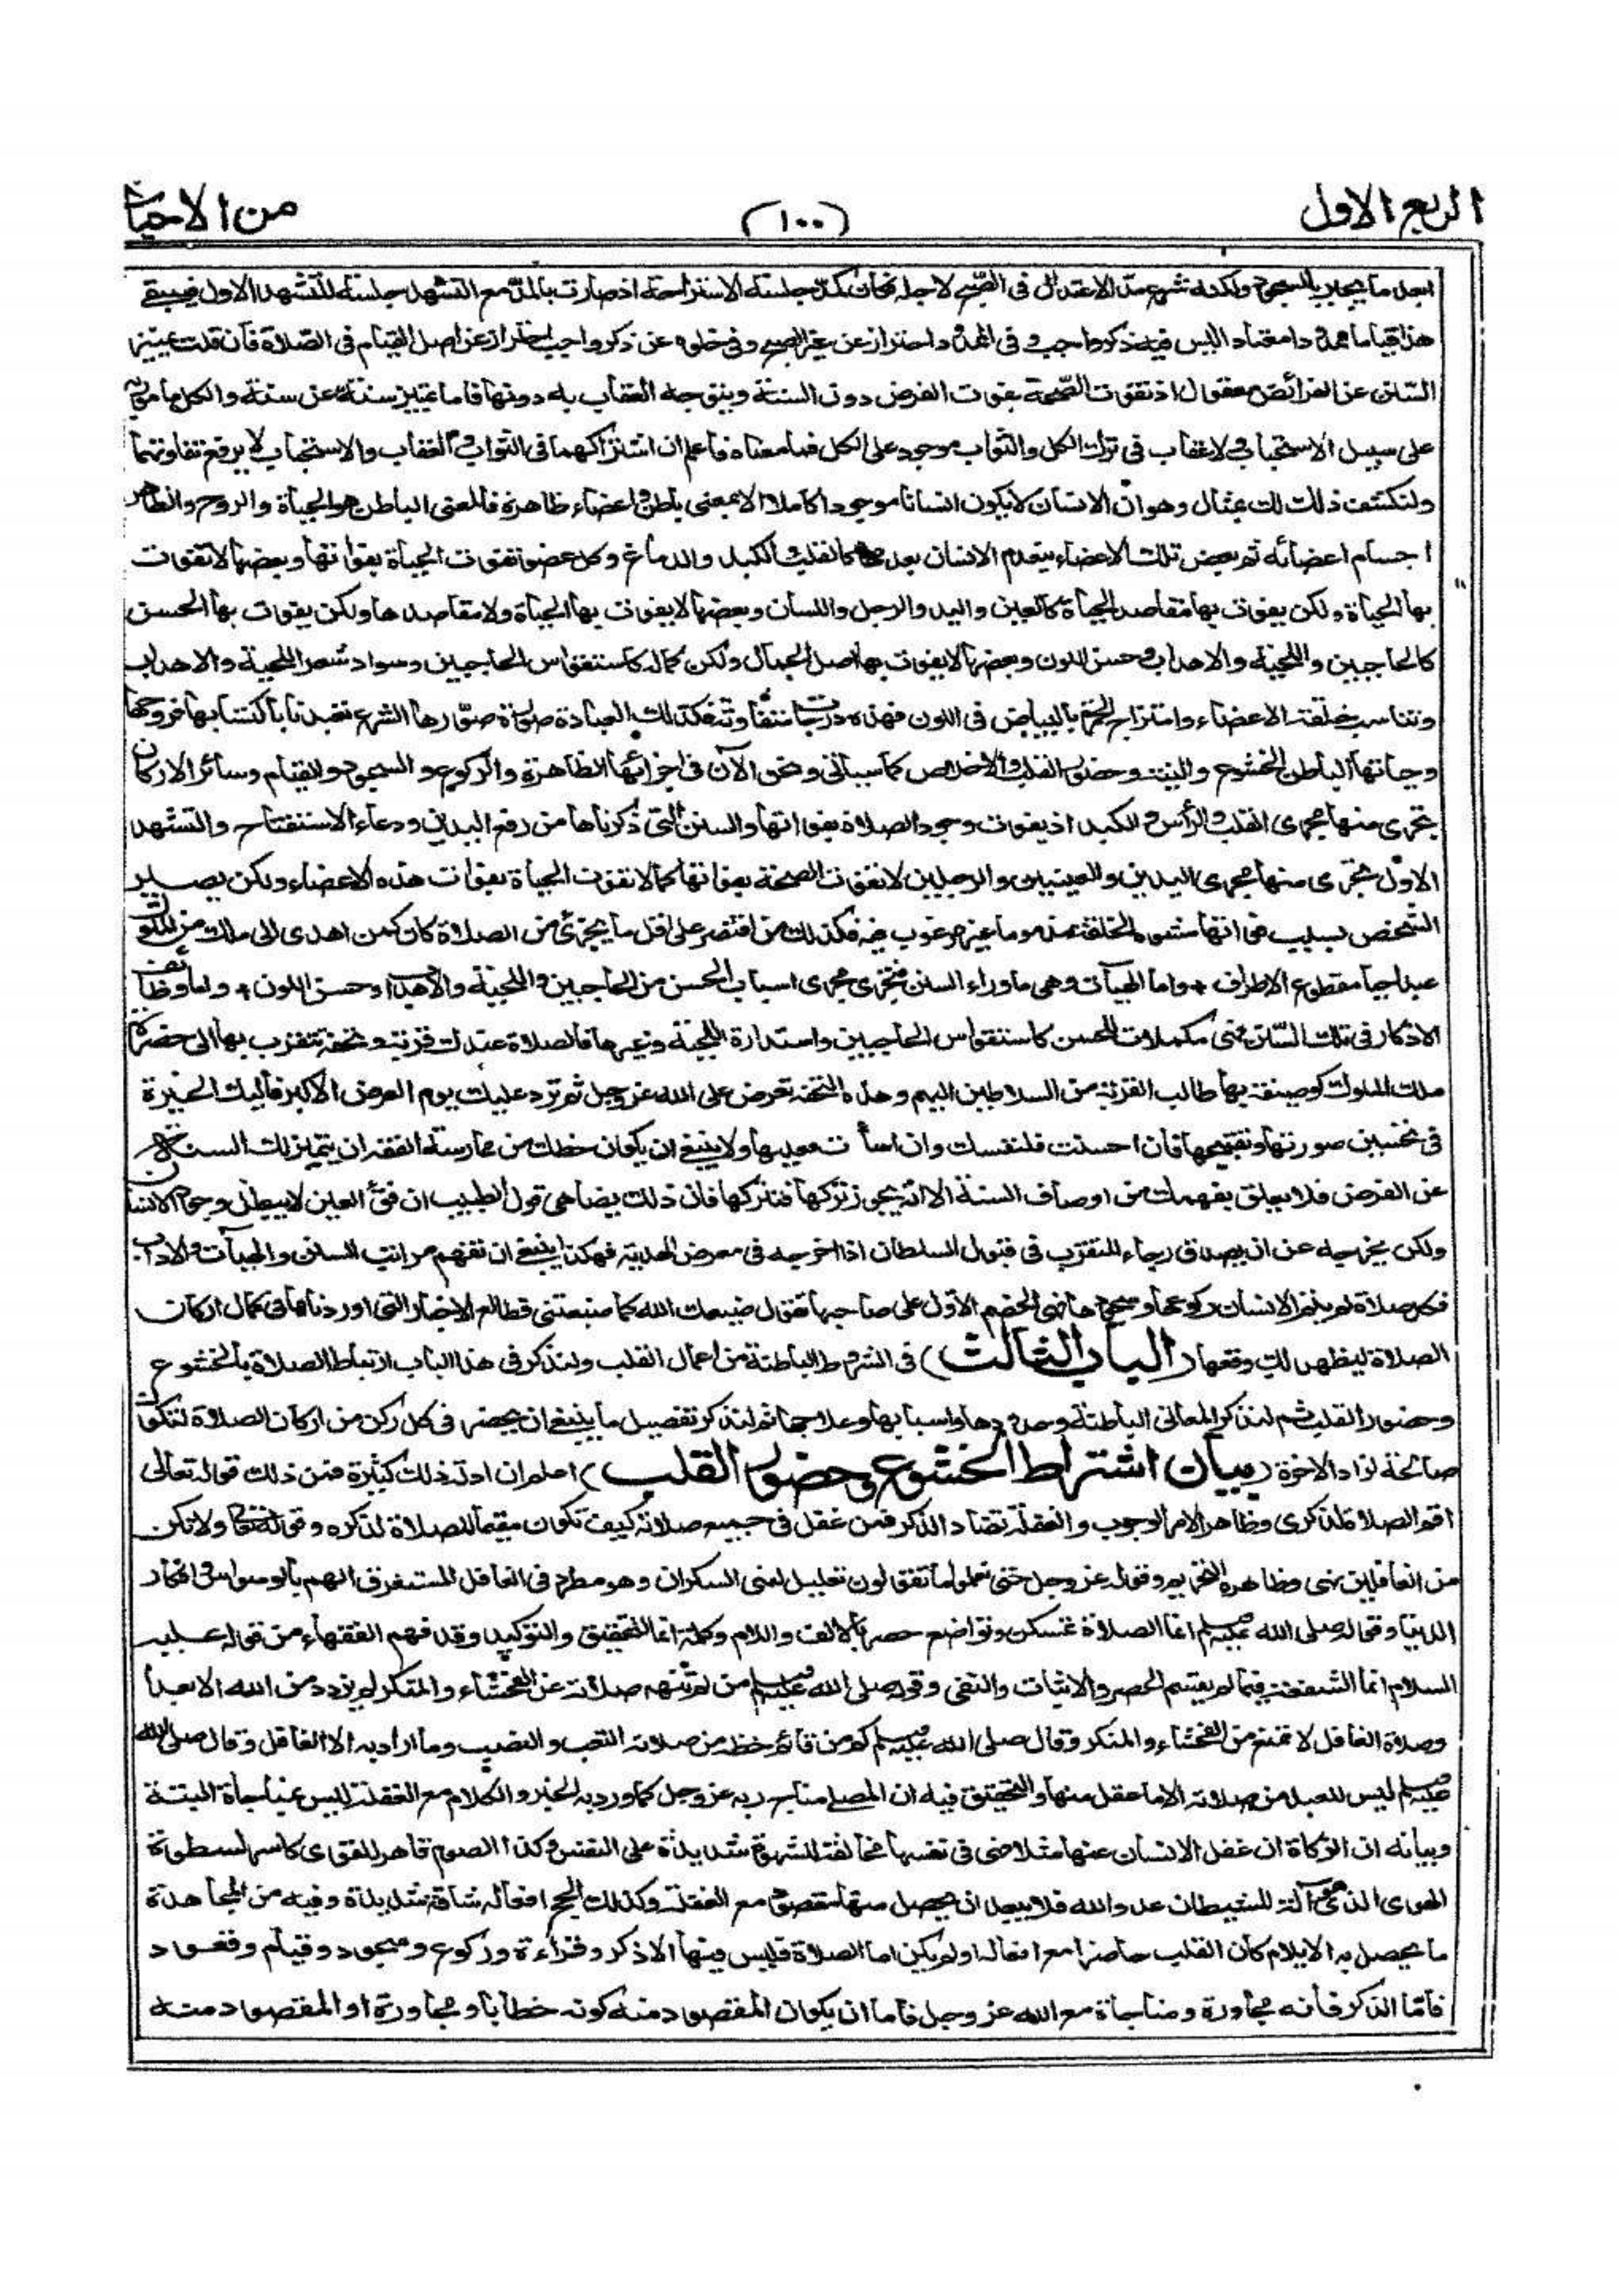 الربع الاول (١٠٠) من الاحياء
ولكنه شرع مد الاعتدال في لاجله فكان كمد جلسة الاستراحة اذ صارت بالمد مع التشهد جلسة للتشهد الاول فيبقى
هذا قياما ممدودا معتادا ليس فيه ذكر واجب وفي الممدود احتراز عن غير الصبح وفي خلوه عن ذكر واجب احتراز عن اصل القيام في الصلاة فان قلت تمييز
السنن عن الفرائض معقول اذ تفوت الصحة بفوات الفرض دون السنة ويتوجه العقاب به دونها فاما تمييز سنة عن سنة والكل مامور به
على سبيل الاستحباب ولا عقاب في ترك الكل والثواب موجود على الكل فما معناه فاعلم ان اشتراكهما في الثواب والعقاب والاستحباب لا يرفع تفاوتهما
ولنكشف ذلك لك بمثال وهو ان الانسان لا يكون انسانا موجودا كاملا الا بمعنى باطن واعضاء ظاهرة فالمعنى الباطن هو الحياة والروح والظاهر
اجسام اعضائه ثم بعض تلك الاعضاء ينعدم الانسان بعدمها كالقلب والكبد والدماغ وكل عضو تفوت الحياة بفواتها وبعضها لا تفوت
بها الحياة ولكن يفوت بها مقاصد الحياة كالعين واليد والرجل واللسان وبعضها لا يفوت بها الحياة ولا مقاصدها ولكن يفوت بها الحسن
كالحاجبين واللحية والاهداب وحسن اللون وبعضها لا يفوت بها اصل الجمال ولكن كماله كاستقواس الحاجبين وسواد شعر اللحية والاهداب
وتناسب خلقة الاعضاء وامتزاج الحمرة بالبياض في اللون فهذه درجات متفاوتة فكذلك العبادة صورة صورها الشرع تعبدنا باكتسابها فروحها
وحياتها الباطن الخشوع والنية وحضور القلب والاخلاص كما سياتي ونحن الآن في اجزائها الظاهرة والركوع والسجود والقيام وسائر الاركان
تجري منها مجرى القلب والرأس والكبد اذ يفوت وجود الصلاة بفواتها والسنن التي ذكرناها من رفع اليدين ودعاء الاستفتاح والتشهد
الاول تجري منها مجرى اليدين والعينين والرجلين لا تفوت الصحة بفواتها كما لا تفوت الحياة بفوات هذه الاعضاء ولكن يصير
الشخص بسبب فواتها مشوه الخلقة مذموما غير مرغوب فيه فكذلك من اقتصر على اقل ما يجزئ من الصلاة كان كمن اهدى الى ملك من الملوك
عبدا حيا مقطوع الاطراف * واما الهيآت وهي ما وراء السنن فتجري مجرى اسباب الحسن من الحاجبين واللحية والاهداب وحسن اللون * واما وظائف
الاذكار في تلك السنن فهي مكملات للحسن كاستقواس الحاجبين واستدارة اللحية وغيرها فالصلاة عندك قربة وتحفة تتقرب بها الى حضرة
ملك الملوك كوصيفة يهديها طالب القربة من السلاطين اليهم وهذه التحفة تعرض على الله عز وجل ثم ترد عليك يوم العرض الاكبر فاليك الخيرة
في تحسين صورتها وتقبيحها فان احسنت فلنفسك وان اسأت فعليها ولا ينبغي ان يكون حظك من ممارسة الفقه ان يتميز لك السنة
عن الفرض فلا يعلق بفهمك من اوصاف السنة الا انه يجوز تركها فتتركها فان ذلك يضاهي قول الطبيب ان فقء العين لا يبطل وجود الانسان
ولكن يخرجه عن ان يصدق رجاء المتقرب في قبول السلطان اذا اخرجه في معرض الهدية فهكذا ينبغي ان تفهم مراتب السنن والهيآت والاداب
فكل صلاة لم يتم الانسان ركوعها وسجودها فهي الخصم الاول على صاحبها تقول ضيعك الله كما ضيعتني فطالع الاخبار التي اوردناها في كمال اركان
الصلاة ليظهر لك وقعها (الباب الثالث) في الشروط الباطنة من اعمال القلب ولنذكر في هذا الباب ارتباط الصلاة بالخشوع
وحضور القلب ثم لنذكر المعاني الباطنة وحدودها واسبابها وعلاجها ثم لنذكر تفصيل ما ينبغي ان يحضر في كل ركن من اركان الصلاة لتكون
صالحة لزاد الاخرة (بيان اشتراط الخشوع وحضور القلب) اعلم ان ادلة ذلك كثيرة فمن ذلك قوله تعالى
اقم الصلاة لذكري وظاهر الامر الوجوب والغفلة تضاد الذكر فمن غفل في جميع صلاته كيف تكون مقيما للصلاة لذكره وقوله تعالى ولا تكن
من الغافلين نهى وظاهره التحريم وقوله عز وجل حتى تعلموا ما تقولون تعليل لنهى السكران وهو مطرد في الغافل المستغرق الهم بالوسواس وافكار
الدنيا وقوله صلى الله عليه وسلم انما الصلاة تمسكن وتواضع حصر بالالف واللام وكلمة انما للتحقيق والتوكيد وقد فهم الفقهاء من قوله عليه
السلام انما الشفعة فيما لم يقسم الحصر والاثبات والنفى وقوله صلى الله عليه وسلم من لم تنهه صلاته عن الفحشاء والمنكر لم يزدد من الله الا بعدا
وصلاة الغافل لا تمنع من الفحشاء والمنكر وقال صلى الله عليه وسلم كم من قائم حظه من صلاته التعب والنصب وما اراد به الا الغافل وقال صلى الله
عليه وسلم ليس للعبد من صلاته الا ما عقل منها والتحقيق فيه ان المصلي مناج ربه عز وجل كما ورد به الخبر والكلام مع الغفلة ليس بمناجاة البتة
وبيانه ان الزكاة ان غفل الانسان عنها مثلا فهي في نفسها مخالفة للشهوة شديدة على النفس وكذا الصوم قاهر للقوى كاسر لسطوة
الهوى الذي هو آلة للشيطان عدو الله فلا يبعد ان يحصل منها مقصود مع الغفلة وكذلك الحج افعاله شاقة شديدة وفيه من المجاهدة
ما يحصل به الايلام كان القلب حاضرا مع افعاله او لم يكن اما الصلاة فليس فيها الا ذكر وقراءة وركوع وسجود وقيام وقعود
فاما الذكر فانه مجاورة ومناجاة مع الله عز وجل فاما ان يكون المقصود منه كونه خطابا ومجاورة او المقصود منه